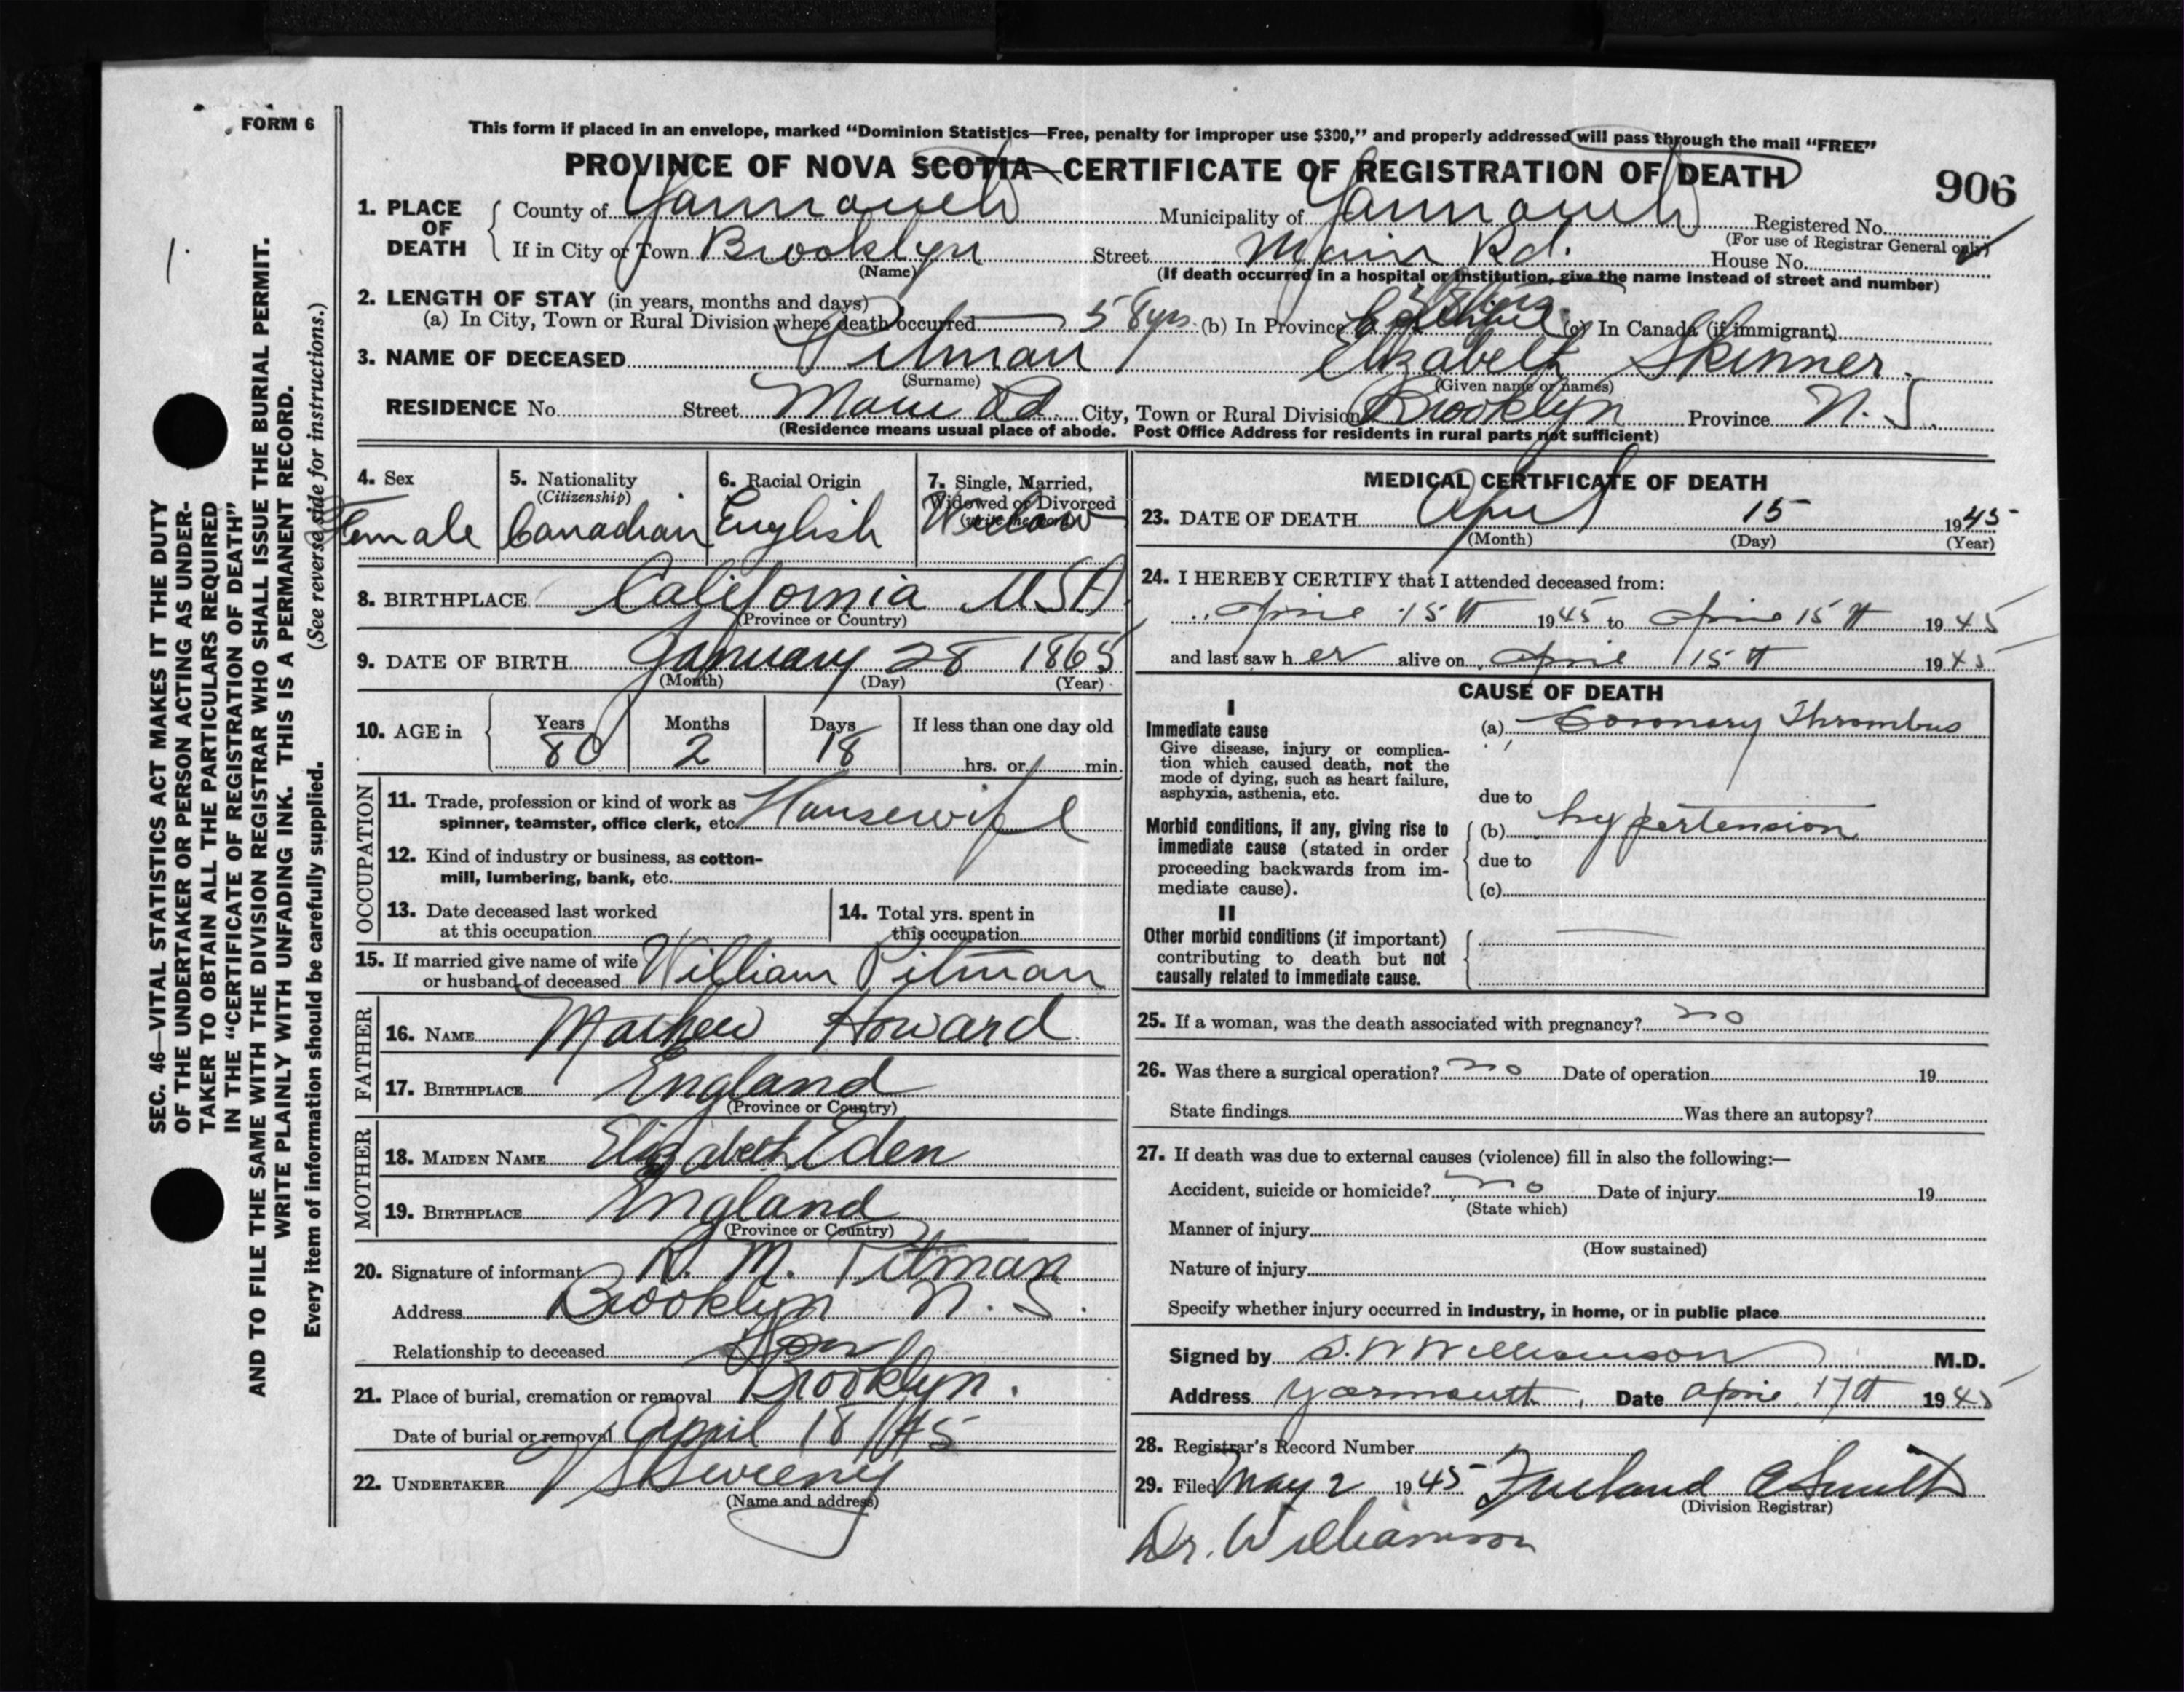 FORM 6
This form if placed in an envelope, marked “Dominion Statistics—Free, penalty for improper use $300,” and properly addressed will pass through the mail “FREE”
PROVINCE OF NOVA SCOTIA—CERTIFICATE OF REGISTRATION OF DEATH
906
1. PLACE OF DEATH
County of Yarmouth Municipality of Yarmouth Registered No.
(For use of Registrar General only)
If in City or Town Brooklyn Street Main Rd. House No.
(Name)
(If death occurred in a hospital or institution, give the name instead of street and number)
2. LENGTH OF STAY (in years, months and days)
(a) In City, Town or Rural Division where death occurred 58 yrs (b) In Province (c) In Canada (if immigrant)
3. NAME OF DECEASED Pitman Elizabeth Skinner
(Surname) (Given name or names)
RESIDENCE No. Street Main Rd City, Town or Rural Division Brooklyn Province N.S.
(Residence means usual place of abode. Post Office Address for residents in rural parts not sufficient)
4. Sex
Female
5. Nationality
(Citizenship)
Canadian
6. Racial Origin
English
7. Single, Married,
Widowed or Divorced
(write the word)
Widow
8. BIRTHPLACE California USA
(Province or Country)
9. DATE OF BIRTH January 28 1865
(Month) (Day) (Year)
10. AGE in Years Months Days If less than one day old
80 2 18 hrs. or min.
OCCUPATION
11. Trade, profession or kind of work as
spinner, teamster, office clerk, etc. Housewife
12. Kind of industry or business, as cotton-
mill, lumbering, bank, etc.
13. Date deceased last worked
at this occupation
14. Total yrs. spent in
this occupation
15. If married give name of wife
or husband of deceased William Pitman
FATHER
16. NAME Mathew Howard
17. BIRTHPLACE England
(Province or Country)
MOTHER
18. MAIDEN NAME Elizabeth Eden
19. BIRTHPLACE England
(Province or Country)
20. Signature of informant R. M. Pitman
Address Brooklyn N.S.
Relationship to deceased Son
21. Place of burial, cremation or removal Brooklyn.
Date of burial or removal April 18/45
22. UNDERTAKER V S Sweeny
(Name and address)
MEDICAL CERTIFICATE OF DEATH
23. DATE OF DEATH April 15 1945
(Month) (Day) (Year)
24. I HEREBY CERTIFY that I attended deceased from:
April 15th 1945 to April 15th 1945
and last saw her alive on April 15th 1945
CAUSE OF DEATH
I
Immediate cause
Give disease, injury or complica-
tion which caused death, not the
mode of dying, such as heart failure,
asphyxia, asthenia, etc.
(a) Coronary Thrombus
due to
Morbid conditions, if any, giving rise to
immediate cause (stated in order
proceeding backwards from im-
mediate cause).
(b) hypertension
due to
(c)
II
Other morbid conditions (if important)
contributing to death but not
causally related to immediate cause.
25. If a woman, was the death associated with pregnancy? no
26. Was there a surgical operation? no Date of operation 19
State findings Was there an autopsy?
27. If death was due to external causes (violence) fill in also the following:—
Accident, suicide or homicide? no Date of injury 19
(State which)
Manner of injury
(How sustained)
Nature of injury
Specify whether injury occurred in industry, in home, or in public place
Signed by S. W Williamson M.D.
Address Yarmouth, Date April 17th 1945
28. Registrar's Record Number
29. Filed May 2 1945 A Smith
(Division Registrar)
Dr. Williamson
SEC. 46—VITAL STATISTICS ACT MAKES IT THE DUTY
OF THE UNDERTAKER OR PERSON ACTING AS UNDER-
TAKER TO OBTAIN ALL THE PARTICULARS REQUIRED
IN THE “CERTIFICATE OF REGISTRATION OF DEATH”
AND TO FILE THE SAME WITH THE DIVISION REGISTRAR WHO SHALL ISSUE THE BURIAL PERMIT.
WRITE PLAINLY WITH UNFADING INK. THIS IS A PERMANENT RECORD.
Every item of information should be carefully supplied. (See reverse side for instructions.)